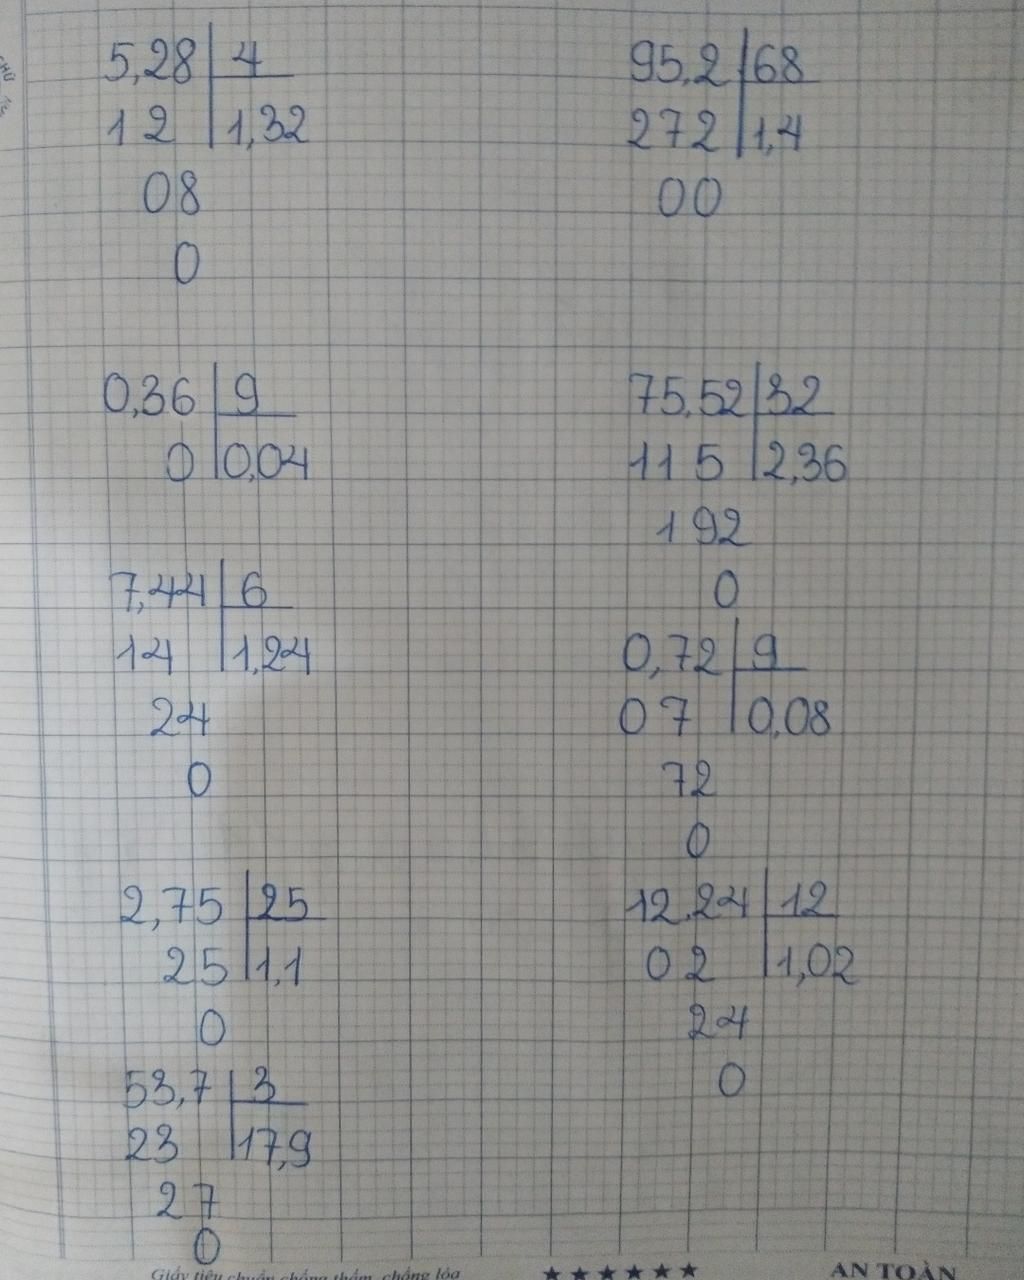 5,28 4
12 1,32
08
0
95,2 68
272 1,4
00
0,36 9
0 0,04
75,52 32
115 2,36
192
0
7,44 6
14 1,24
24
0
0,72 9
07 0,08
72
0
2,75 25
25 1,1
0
12,24 12
02 1,02
24
0
53,7 3
23 17,9
27
0
Giấy tiêu chuẩn chống thấm, chống lóa ★★★★★★ AN TOÀN